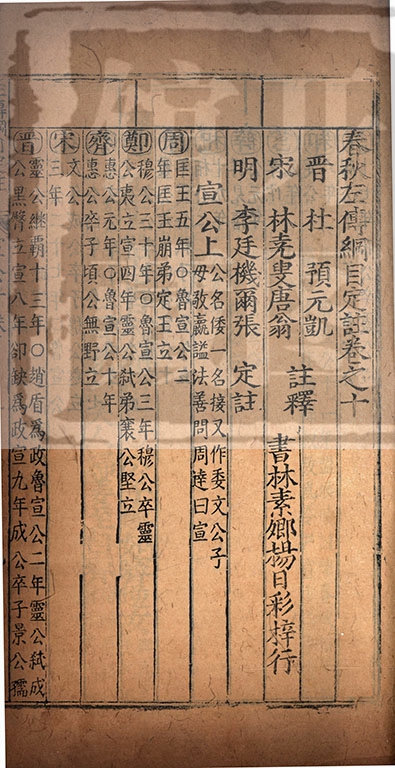 春秋左傳綱目定註卷之十
晋 杜 預元凱
宋 林堯叟唐翁 註釋 書林素卿楊日彩梓行
明 李廷機爾張 定註
宣公上 公名倭一名接又作委文公子
母敬嬴謚法善問周達曰宣
周 匡王五年○魯宣公二
年匡王崩弟定王立
鄭 穆公二十年○魯宣公三年穆公卒靈
公夷立宣四年靈公弒弟襄公堅立
齊 惠公元年○魯宣公十年
惠公卒子頃公無野立
宋 文公
三年
晋 靈公継覇十三年○趙盾爲政魯宣公二年靈公弒成
公黑臀立宣八年卻缺爲政宣九年成公卒子景公獳